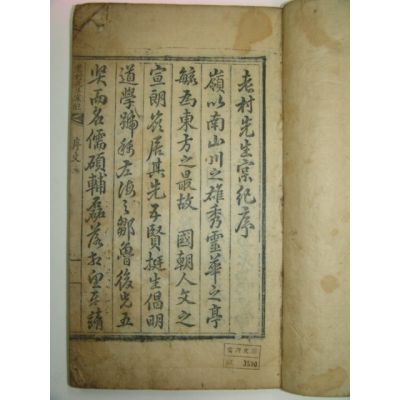 老村先生實紀序
嶺以南山川之雄秀靈華之亭
毓爲東方之最故 國朝人文之
宣朗咨居其先 賢挺生倡明
道學號稱左海之鄒魯後先五
而名儒碩輔磊落相望
序文
3590